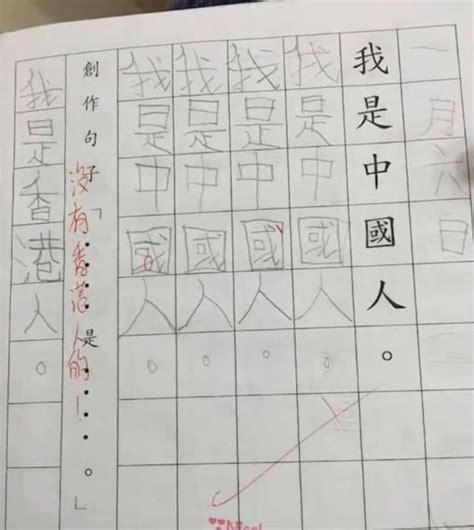 一月六日
我是中國人。
我是中國人。
我是中國人。
我是中國人。
我是中國人。
創作句子「……是……。」
沒有香港人的！
我是香港人。
Nice!